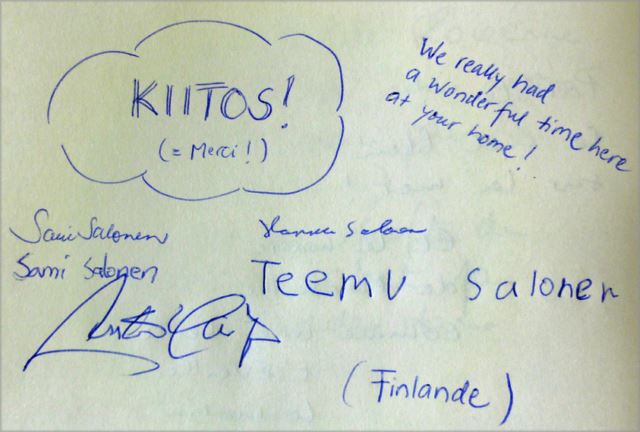 KIITOS!
(= Merci!)
We really had
a wonderful time here
at your home!
Sami Salonen
Sami Salonen
Hannu Salonen
Teemu Salonen
(Finlande)